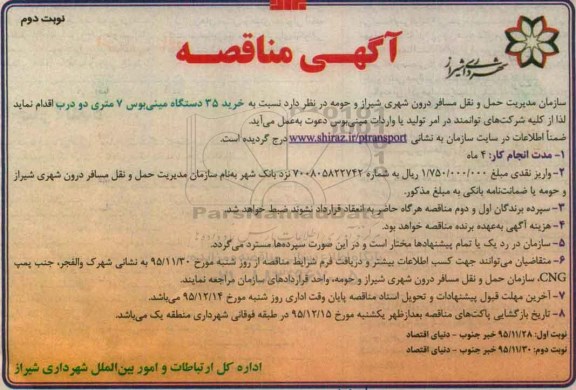 نوبت دوم
شهرداری شیراز
آگهـی مناقصـه
سازمان مدیریت حمل و نقل مسافر درون شهری شیراز و حومه در نظر دارد نسبت به خرید ۳۵ دستگاه مینی‌بوس ۷ متری دو درب اقدام نماید
لذا از کلیه شرکت‌های توانمند در امر تولید یا واردات مینی‌بوس دعوت به‌عمل می‌آید.
ضمناً اطلاعات در سایت سازمان به نشانی www.shiraz.ir/ptransport درج گردیده است.
۱- مدت انجام کار: ۴ ماه
۲- واریز نقدی مبلغ ۱/۷۵۰/۰۰۰/۰۰۰ ریال به شماره ۷۰۰۸۰۵۸۲۲۷۴۲ نزد بانک شهر به‌نام سازمان مدیریت حمل و نقل مسافر درون شهری شیراز
و حومه یا ضمانت‌نامه بانکی به مبلغ مذکور.
۳- سپرده برندگان اول و دوم مناقصه هرگاه حاضر به انعقاد قرارداد نشوند ضبط خواهد شد.
۴- هزینه آگهی به‌عهده برنده مناقصه خواهد بود.
۵- سازمان در رد یک یا تمام پیشنهادها مختار است و در این صورت سپرده‌ها مسترد می‌گردد.
۶- متقاضیان می‌توانند جهت کسب اطلاعات بیشتر و دریافت فرم شرایط مناقصه از روز شنبه مورخ ۹۵/۱۱/۳۰ به نشانی شهرک والفجر، جنب پمپ
CNG، سازمان حمل و نقل مسافر درون شهری شیراز و حومه، واحد قراردادهای سازمان مراجعه نمایند.
۷- آخرین مهلت قبول پیشنهادات و تحویل اسناد مناقصه پایان وقت اداری روز شنبه مورخ ۹۵/۱۲/۱۴ می‌باشد.
۸- تاریخ بازگشایی پاکت‌های مناقصه بعدازظهر یکشنبه مورخ ۹۵/۱۲/۱۵ در طبقه فوقانی شهرداری منطقه یک می‌باشد.
نوبت اول: ۹۵/۱۱/۲۸ خبر جنوب - دنیای اقتصاد
نوبت دوم: ۹۵/۱۱/۳۰ خبر جنوب - دنیای اقتصاد
اداره کل ارتباطات و امور بین‌الملل شهرداری شیراز
ParsNamadData